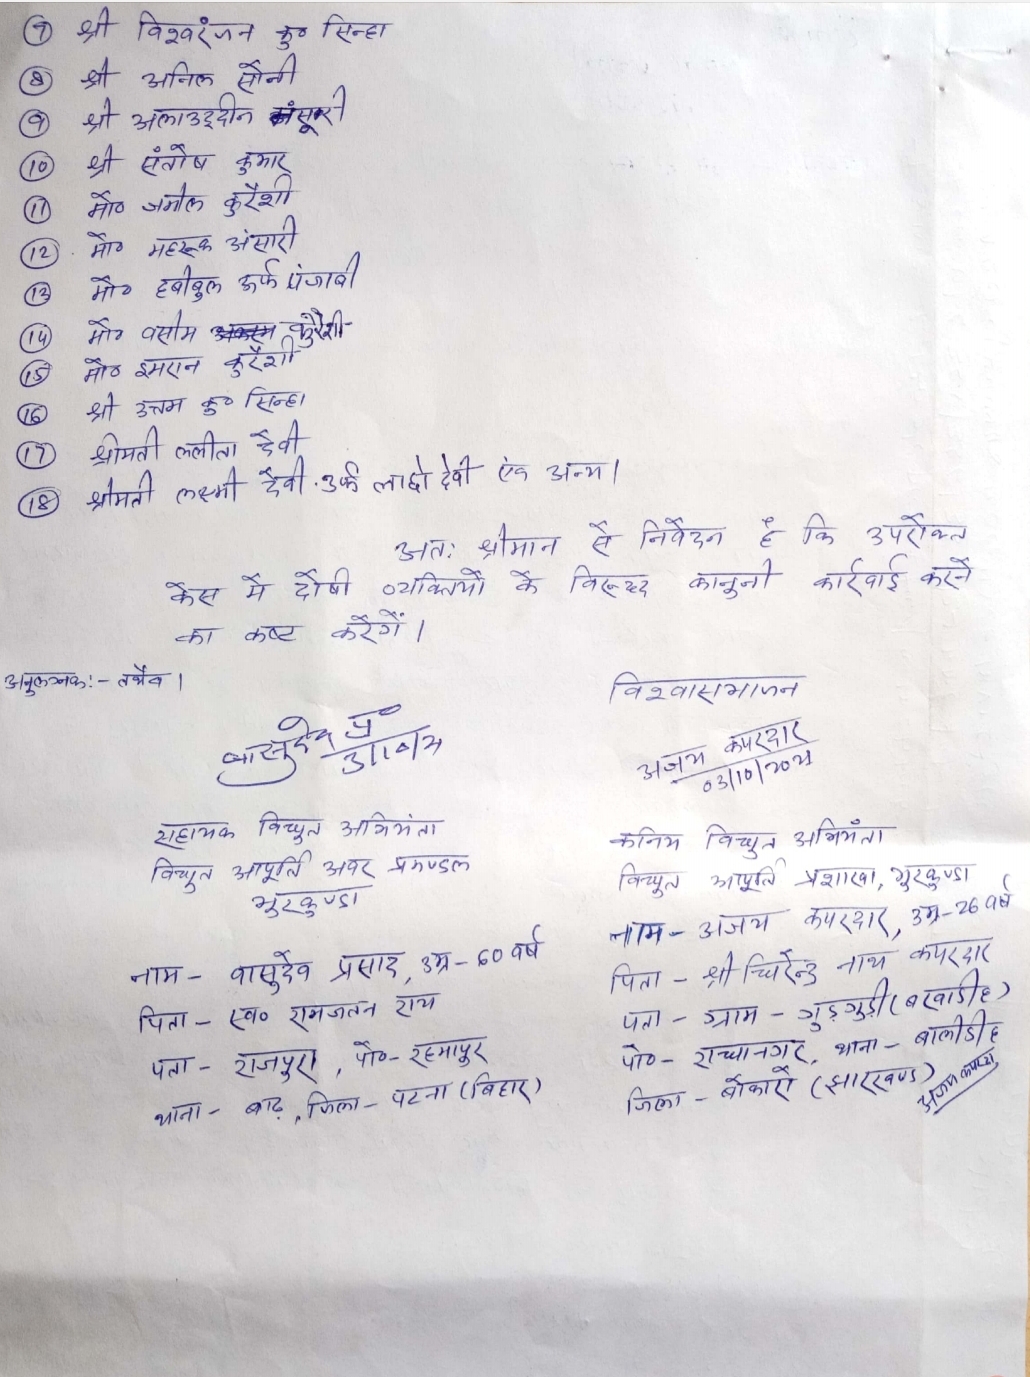 ⑦ श्री विश्वरंजन कु० सिन्हा
⑧ श्री अनिल सोनी
⑨ श्री अलाउद्दीन मंसूरी
⑩ श्री संतोष कुमार
⑪ मो० जमील कुरैशी
⑫ मो० महरूक अंसारी
⑬ मो० हबीबुल उर्फ पंजाबी
⑭ मो० वसीम कुरैशी
⑮ मो० इमरान कुरैशी
⑯ श्री उत्तम कु० सिन्हा
⑰ श्रीमती ललीता देवी
⑱ श्रीमती लक्ष्मी देवी उर्फ लाछो देवी एंव अन्य।
अतः श्रीमान से निवेदन है कि उपरोक्त
केस में दोषी व्यक्तियों के विरूद्ध कानुनी कार्रवाई करने
का कष्ट करेगें।
अनुलग्नक:- तथैव।
विश्वासभाजन
वासुदेव प्र०
3/10/24
अजय कपरदार
03/10/2024
सहायक विद्युत अभियंता
विद्युत आपूर्ति अवर प्रमण्डल
भुरकुण्डा
नाम - वासुदेव प्रसाद, उम्र - 60 वर्ष
पिता - स्व० रामजतन राय
पता - राजपुरा, पो०- रहमापुर
थाना - बाढ़, जिला - पटना (बिहार)
कनिय विद्युत अभियंता
विद्युत आपूर्ति प्रशाखा, भुरकुण्डा
नाम - अजय कपरदार, उम्र - 26 वर्ष
पिता - श्री धिरेन्द्र नाथ कपरदार
पता - ग्राम - गुड़गुड़ी (बरवाडीह)
पो०- राधानगर, थाना - बालीडीह
जिला - बोकारो (झारखण्ड)
अजय कपरदार